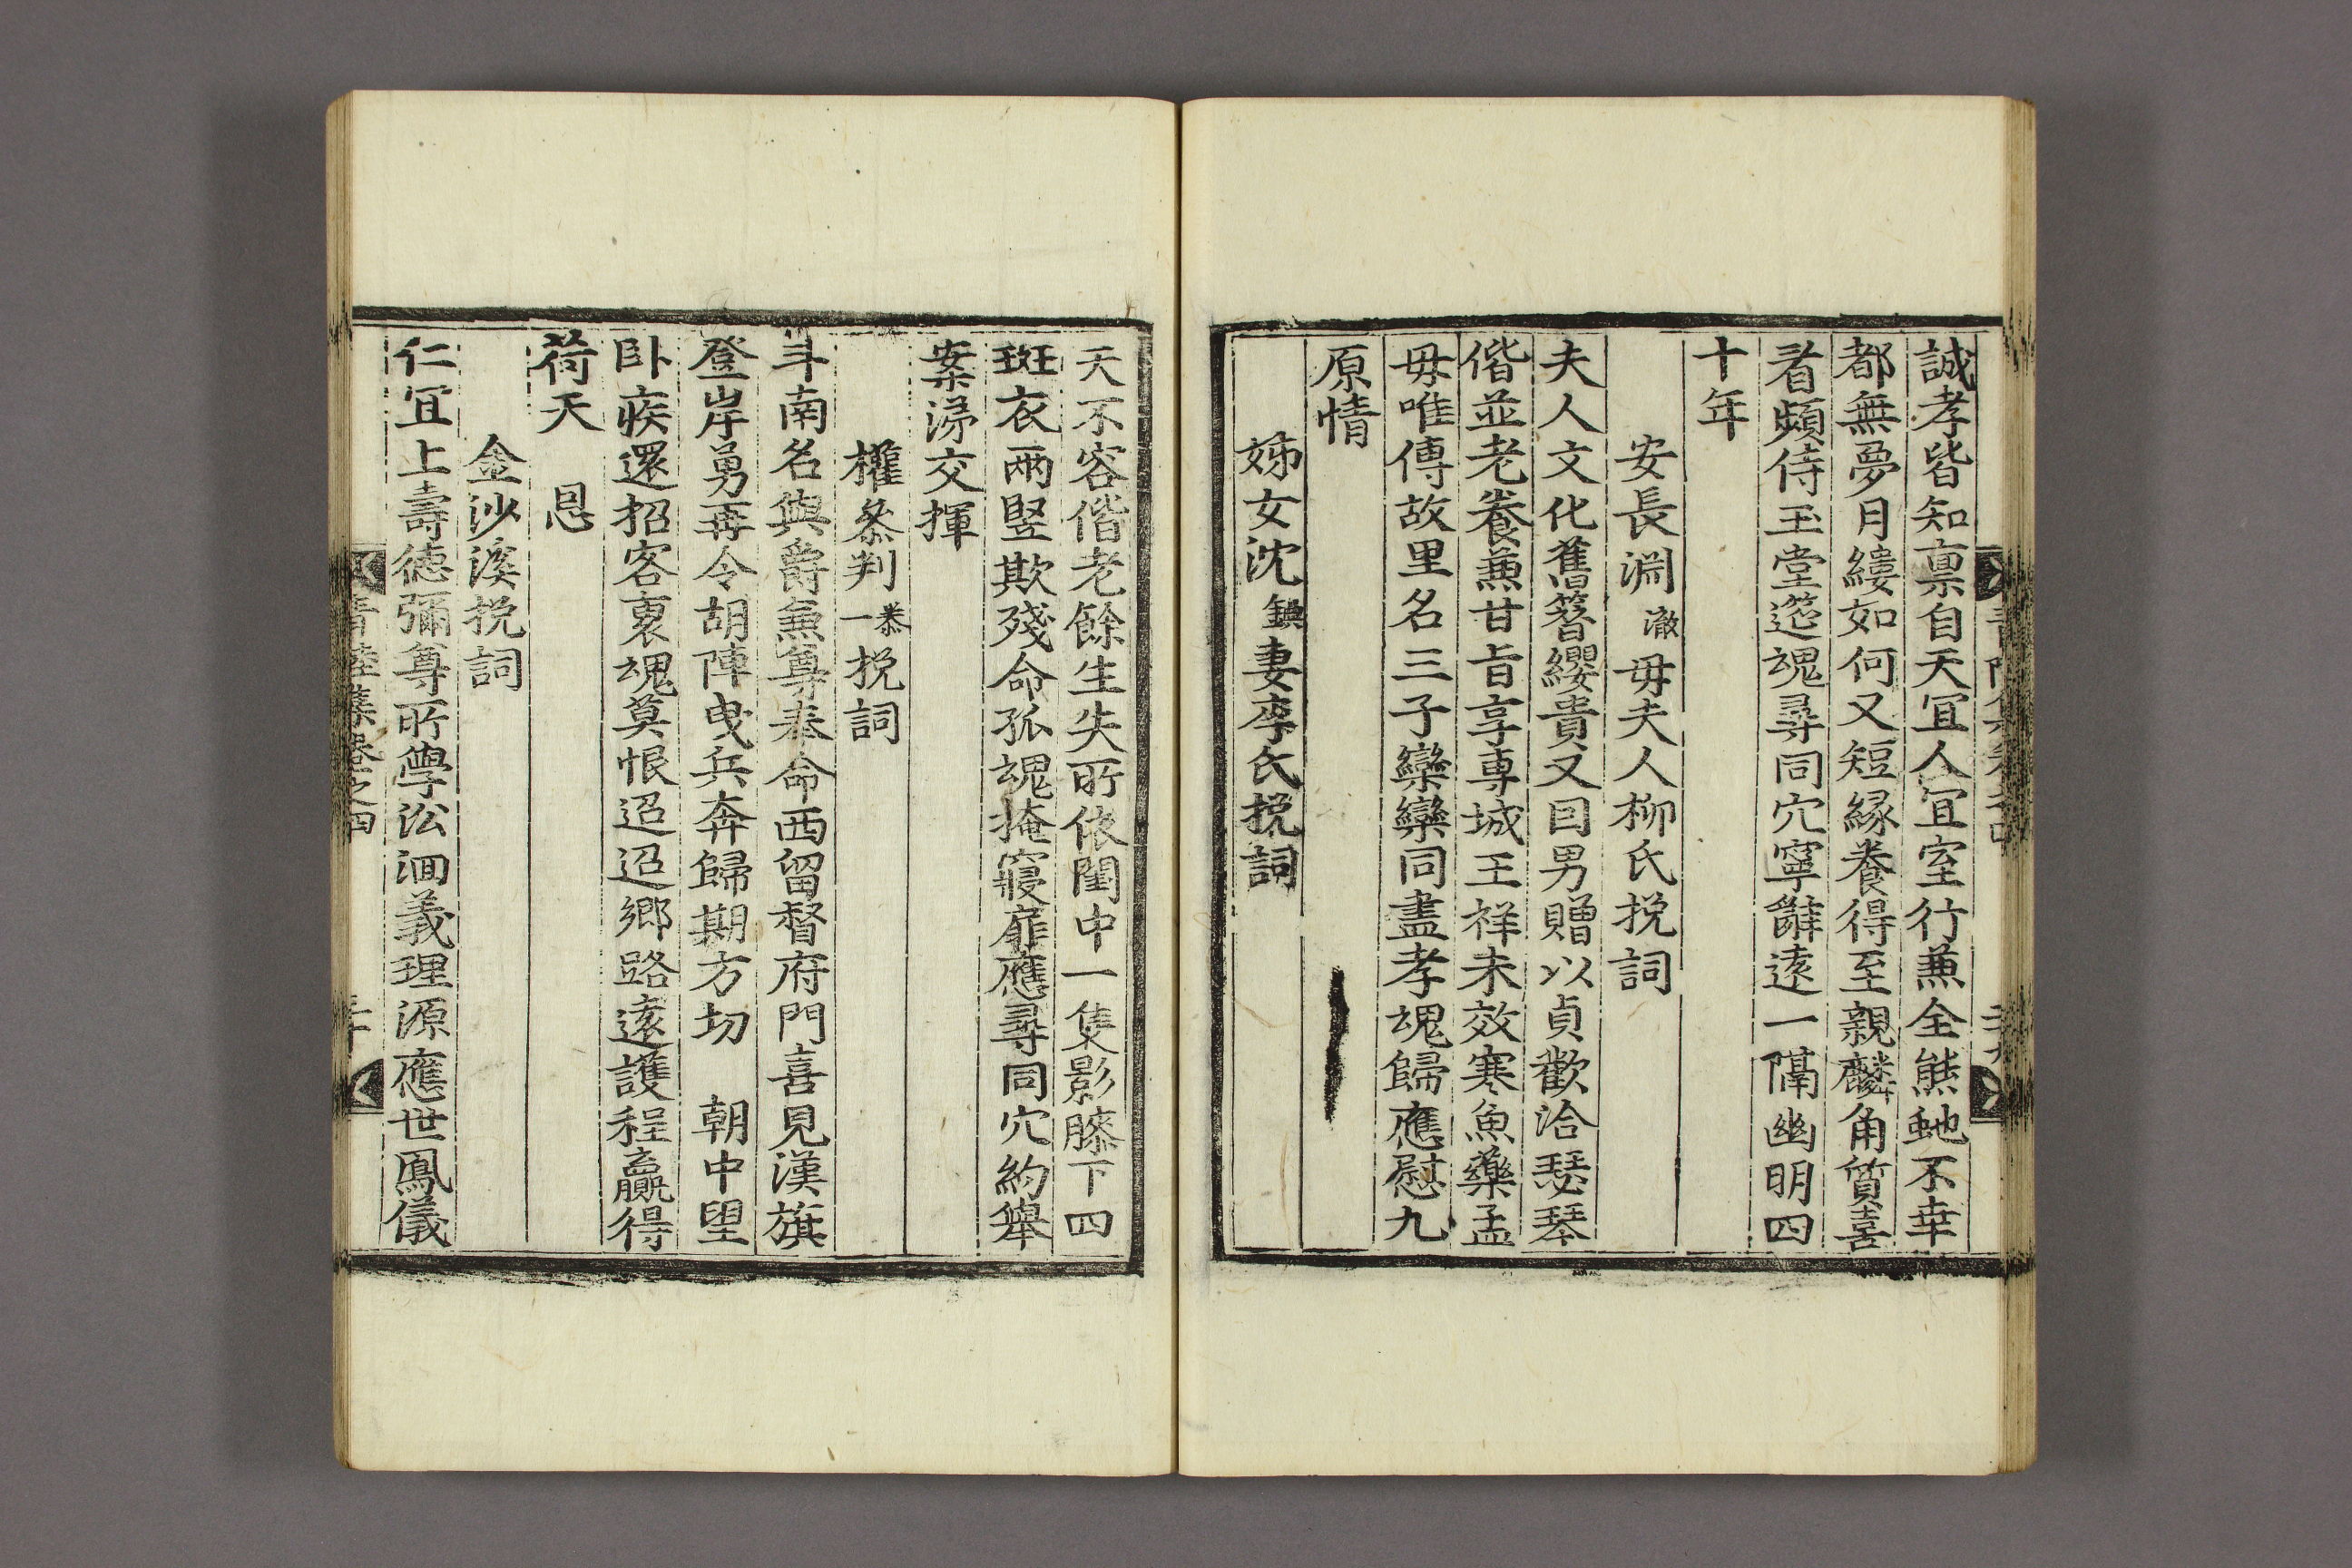 誠孝皆知禀自天宜人宜室行蕪全熊虵不幸
都無夢月縷如何又短緣養得至親麟角質喜
看頻侍玉堂筵魂尋同穴寧辭遠一隔幽明四
十年
安長淵澈毋夫人柳氏挽詞
夫人文化舊簪纓貴又因男贈以貞歡洽瑟琴
偕並老養兼甘旨享專城王祥未效寒魚藥孟
毋唯傳故里名三子欒欒同盡孝魂歸應慰九
原情
姊女沈鎮妻李氏挽詞
天不容偕老餘生失所依閨中一隻影膝下四
斑衣兩竪欺殘命孤魂掩寢扉應尋同穴約舉
案涕交揮
權叅判忝一挽詞
斗南名與爵兼尊奉命西留督府門喜見漢旗
登岸勇再令胡陣曵兵奔歸期方切 朝中望
卧疾還招客裏魂莫恨迢迢鄉路遠護程贏得
荷天 恩
金沙溪挽詞
仁宜上壽德彌尊所學㳂洄義理源應世鳳儀
青陸集卷之四 三十